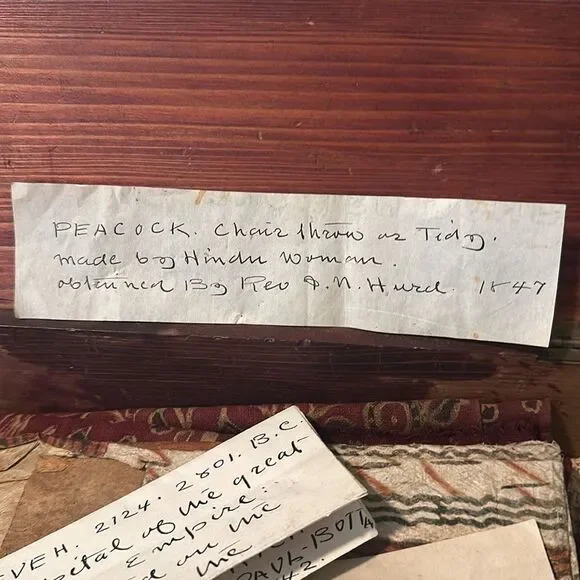 PEACOCK. Chair throw or Tidy.
made by Hindu Woman.
obtained By Rev I. N. Hurd. 1847
VEH. 2124. 2801. B.C.
pital of the great
Empire:
on the
the
PAUL-BOTTA
42.